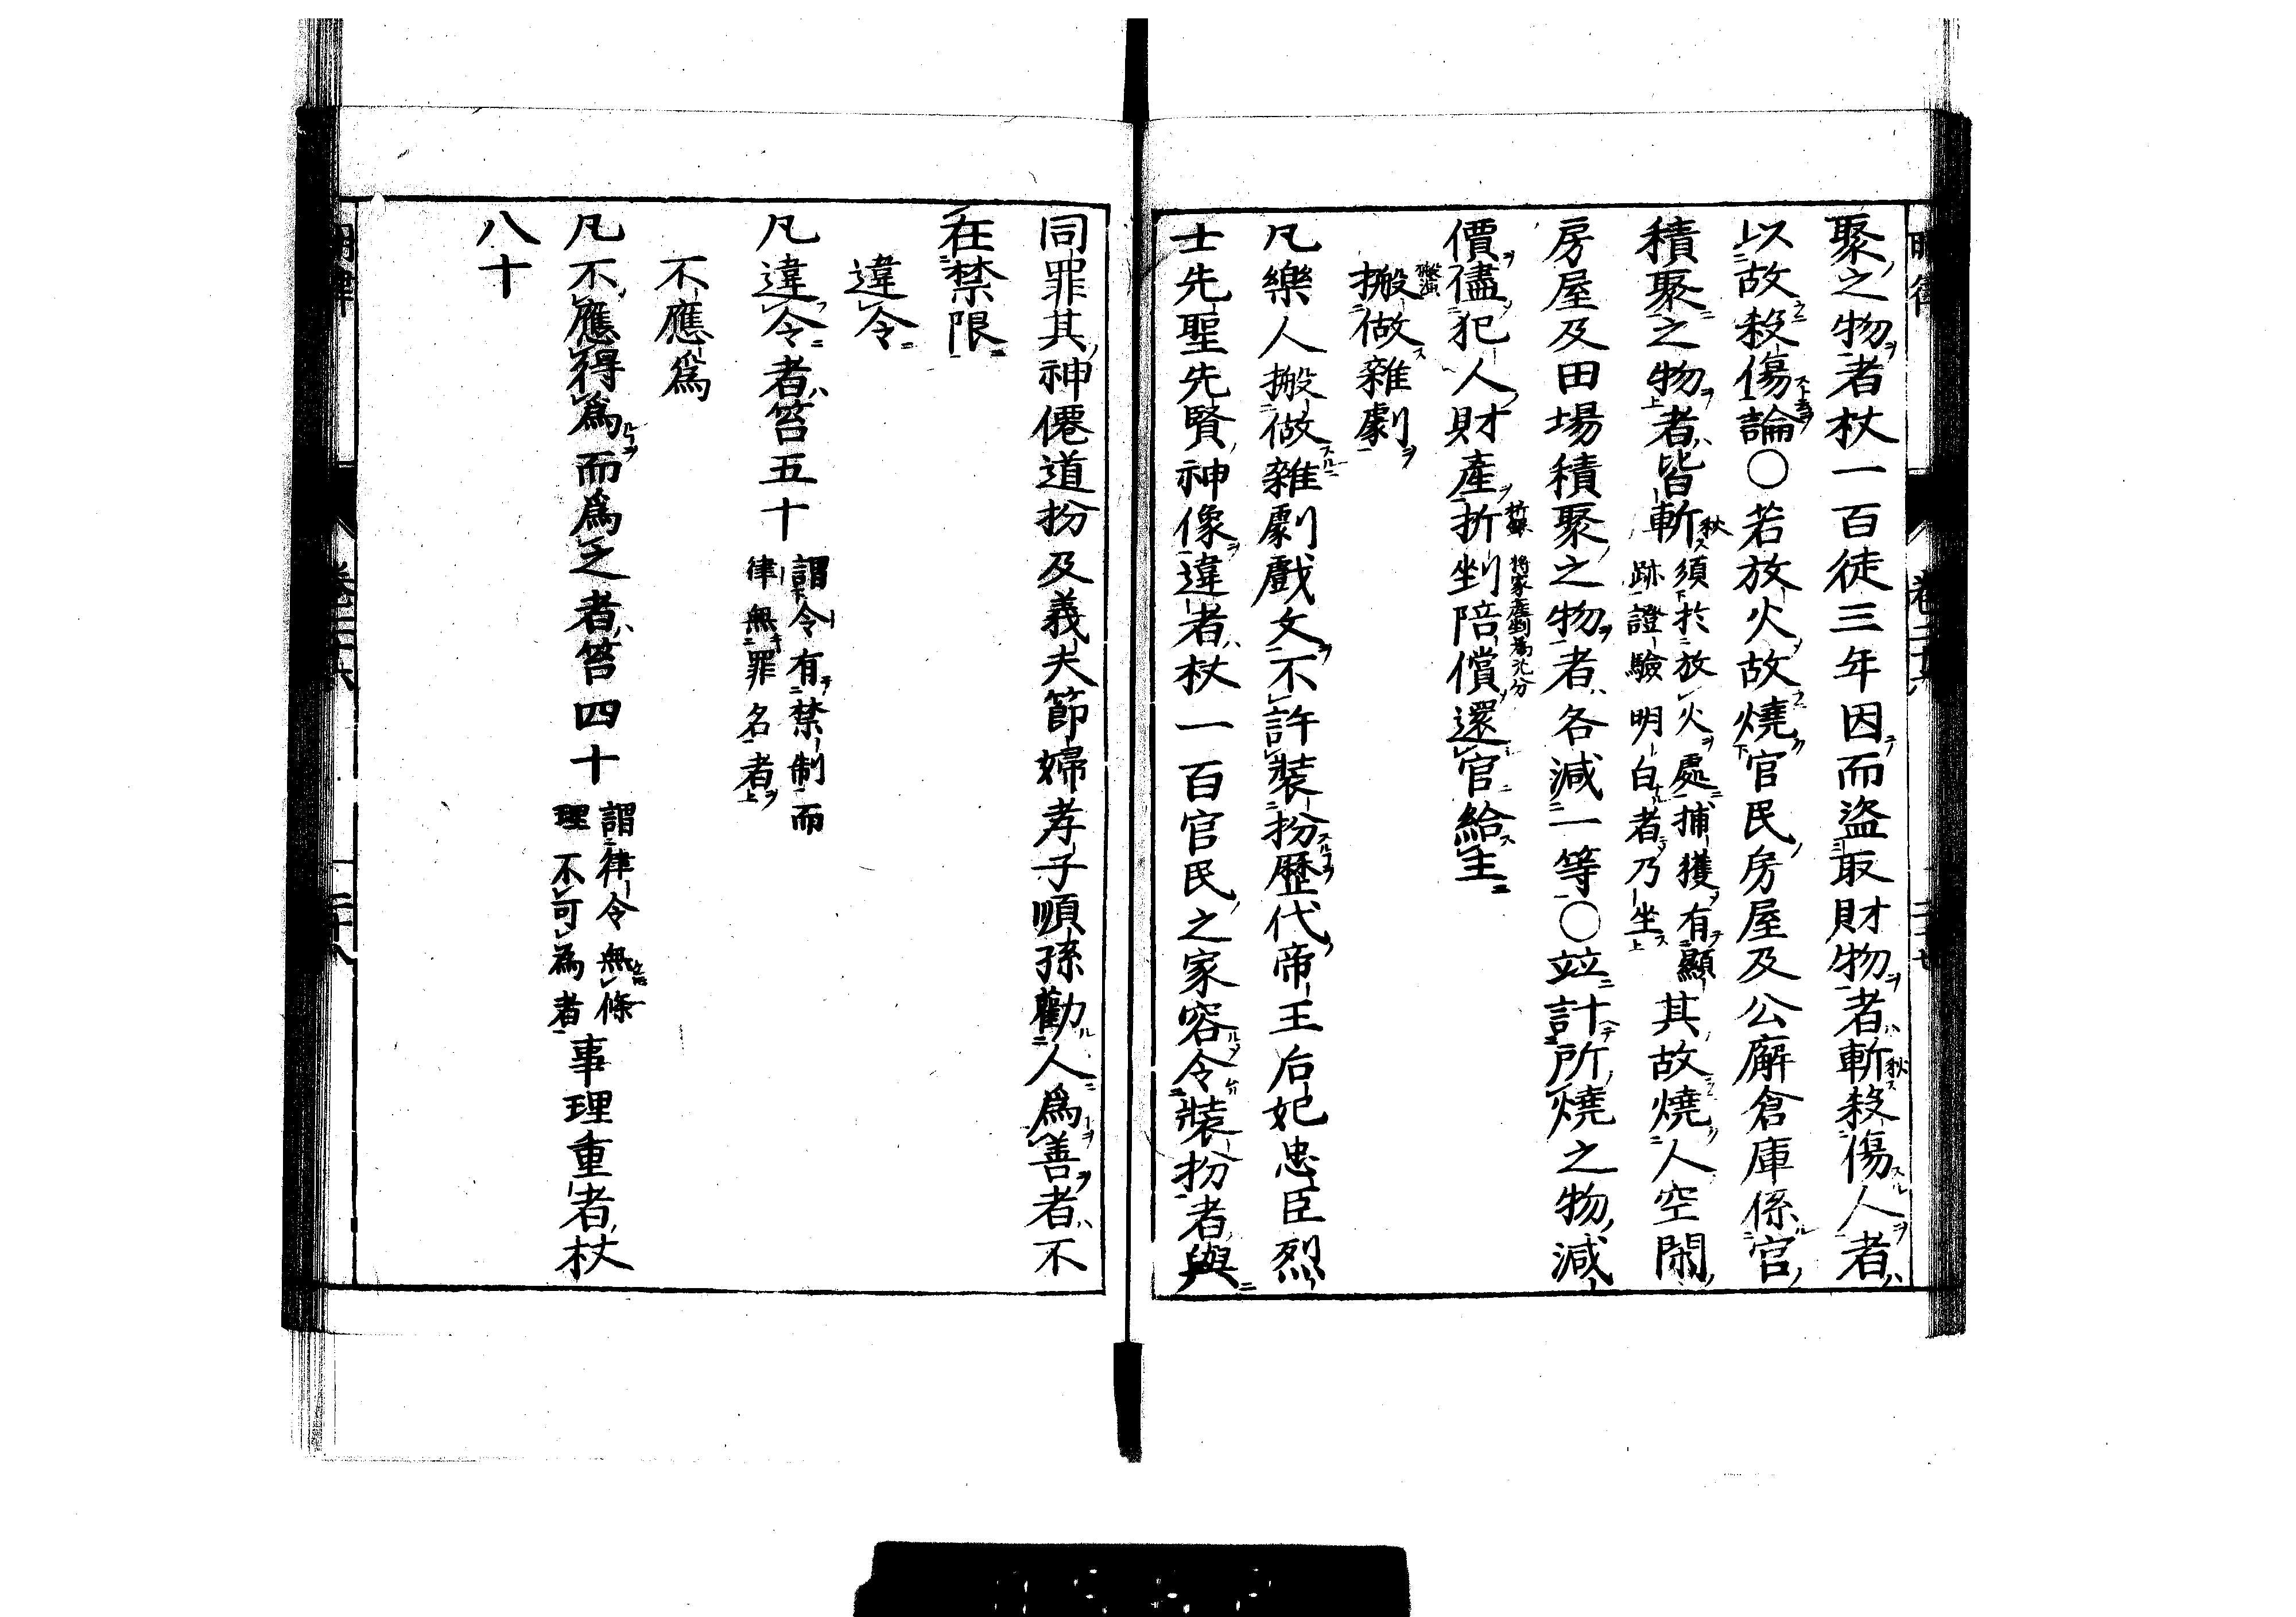 聚之物者杖一百徒三年因而盜取財物者斬殺傷人者
以故殺傷論○若放火故燒官民房屋及公廨倉庫係官
積聚之物者皆斬須於放火處捕獲有顯跡證驗明白者乃坐其故燒人空閑
房屋及田場積聚之物者各減一等○竝計所燒之物減
價儘犯人財產折剉賠償還官給主
搬做雜劇
凡樂人搬做雜劇戲文不許裝扮歷代帝王后妃忠臣烈
士先聖先賢神像違者杖一百官民之家容令裝扮者與
同罪其神僊道扮及義夫節婦孝子順孫勸人爲善者不
在禁限
違令
凡違令者笞五十謂令有禁制而律無罪名者
不應爲
凡不應得爲而爲之者笞四十謂律令無條理不可為者事理重者杖
八十